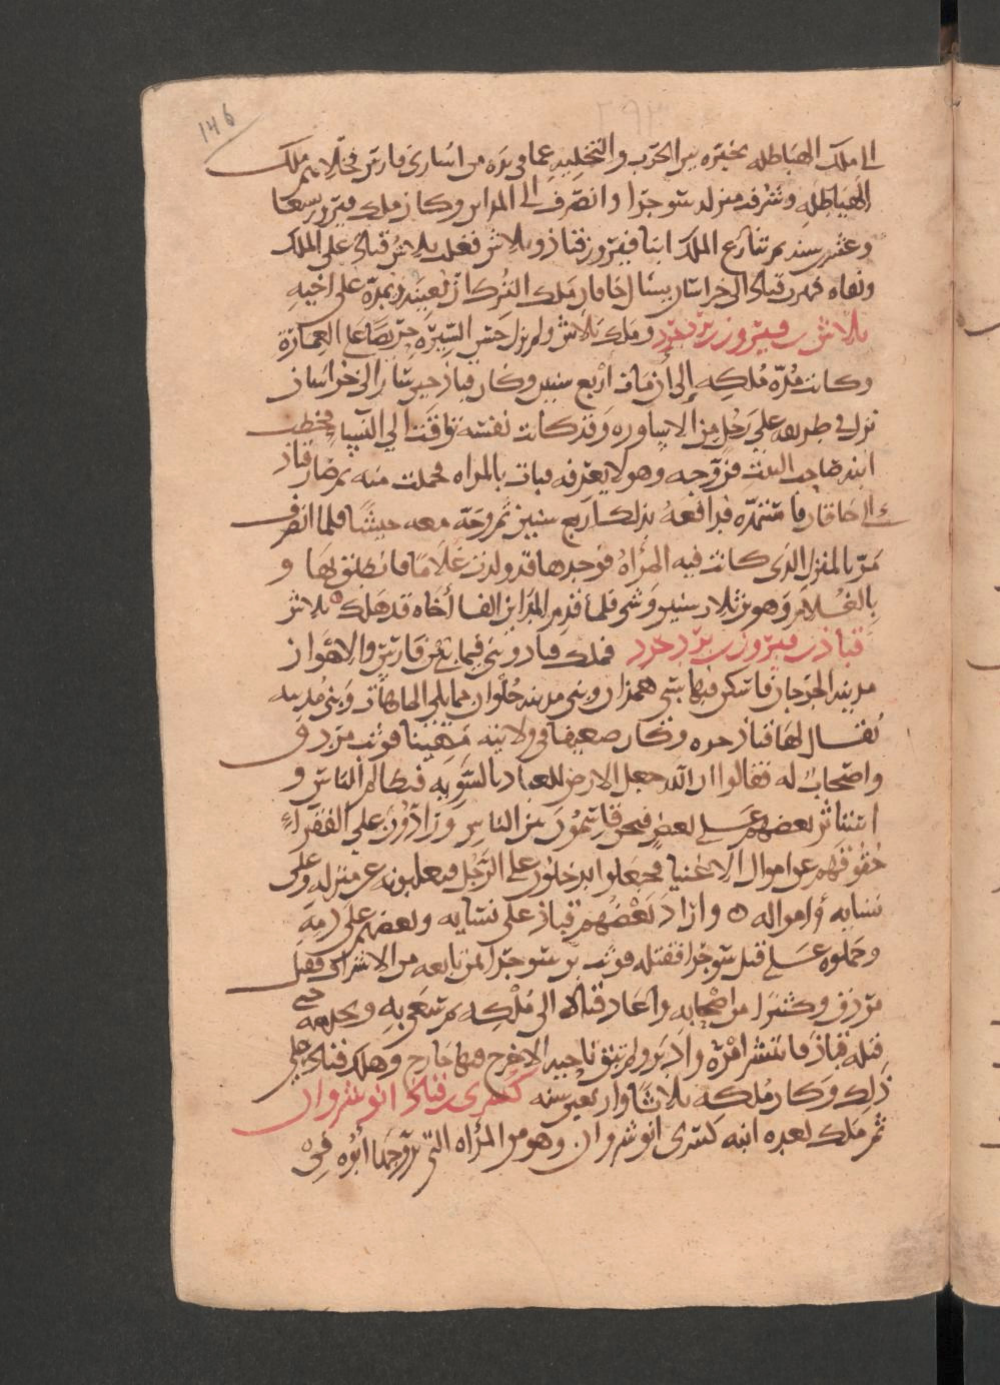 146
الى ملك الهياطله يخيره بين الحرب والتخليه عما فى يده من اسارى فارس فخلاهم ملك
الهياطله وشرف منزله سوجرا وانصرف الى المداين وكان ملك فيروز سبعا
وعشرين سنه ثم تنازع الملك ابنا فيروز قباذ وبلاش فغلب بلاش قباذ على الملك
ونفاه فهرب قباذ الى خراسان يسال خاقان ملك الترك ان يعينه ويمده على اخيه
بلاش بن فيروز بن يزدجرد وملك بلاش ولم يزل حسن السيره حريصا على العماره
وكانت مدة ملكه إلى أن مات أربع سنين وكان قباذ حين سار الى خراسان
نزل في طريقه على رجل من الاساوره وقد كانت نفسه تاقت الى النسا فخطب
ابنه صاحب البيت فزوجه وهو لا يعرفه فبات بالمراه فحملت منه ثم صار قباذ
الى خاقان فاستمده فدافعه بذلك اربع سنين ثم وجه معه جيشا فلما انصرف
مر بالمنزل الذى كانت فيه المراه فوجدها قد ولدت غلاما فانطلق بها و
بالغلام وهو بن ثلاث سنين وشى فلما قدم المداين الفا أخاه قد هلك بلاش
قباذ بن فيروز بن يزدجرد فملك قباذ وبنى فيما بين فارس والاهواز
مدينه الجرجان فاسكن فيها سبى همذان وبنى مدينه حلوان مما يلى الماهات وبنى مدينه
يقال لها قباذ حره وكان ضعيفا فى ولايته مهينا فوثب مزدق
واصحاب له فقالوا ان الله جعل الارض للعباد بالسويه فتظالم الناس و
استاثر بعضهم على بعض فنحن قاسمون بين الناس ورادون على الفقراء
حقوقهم من اموال الاغنيا فجعلوا يدخلون على الرجل فيغلبونه على منزله وعلى
نسايه وامواله وأراد بعضهم قباذ على نسايه وبعضهم على دمه
وحملوه على قتل سوجرا فقتله فوثب بن سوجرا لمن تابعه من الاشراف فقتل
مزدق وكثيرا من اصحابه واعاد قباذ الى ملكه ثم سعى به
قتله قباذ فانتشر امره وادبر ولم تبق ناحيه الا خرج فيها خارج وهلك قباذ على
ذلك وكان ملكه ثلاثا واربعين سنه كسرى بن قباذ انوشروان
ثم ملك بعده ابنه كسرى انوشروان وهو من المراه التى تزوجها ابوه فى